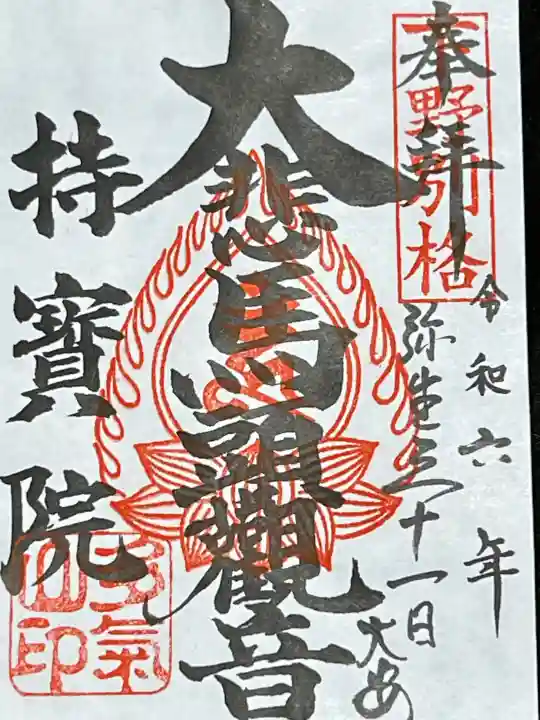 奉拝
野州引格
令和六年
弥生三十一日
大安
大悲馬頭観音
持寶院
多氣山印